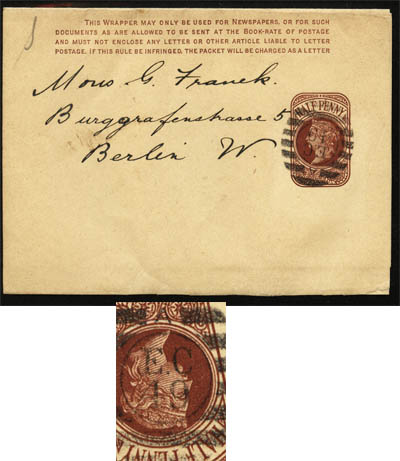 THIS WRAPPER MAY ONLY BE USED FOR NEWSPAPERS, OR FOR SUCH
DOCUMENTS AS ARE ALLOWED TO BE SENT AT THE BOOK-RATE OF POSTAGE
AND MUST NOT ENCLOSE ANY LETTER OR OTHER ARTICLE LIABLE TO LETTER
POSTAGE. IF THIS RULE BE INFRINGED, THE PACKET WILL BE CHARGED AS A LETTER
Mons G. Franck.
Burggrafenstrasse 5
Berlin W.
HALF PENNY
E.C
19
HALF PENNY